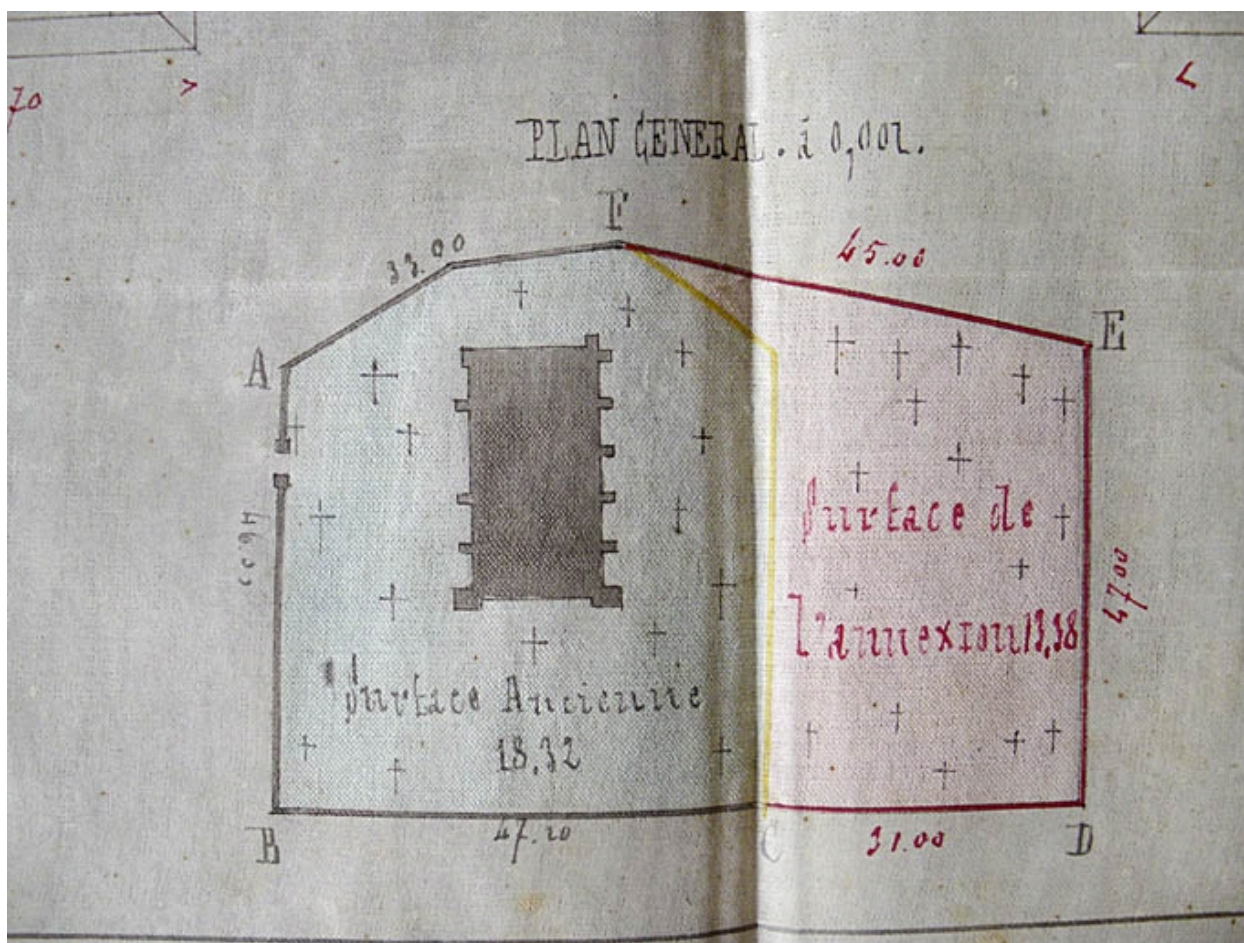 70
PLAN GENERAL. à 0,001.
F
33.00
45.00
A
E
Surface de
47.00
l'annexion 13,38
Surface Ancienne
18.32
47.20
31.00
B
C
D